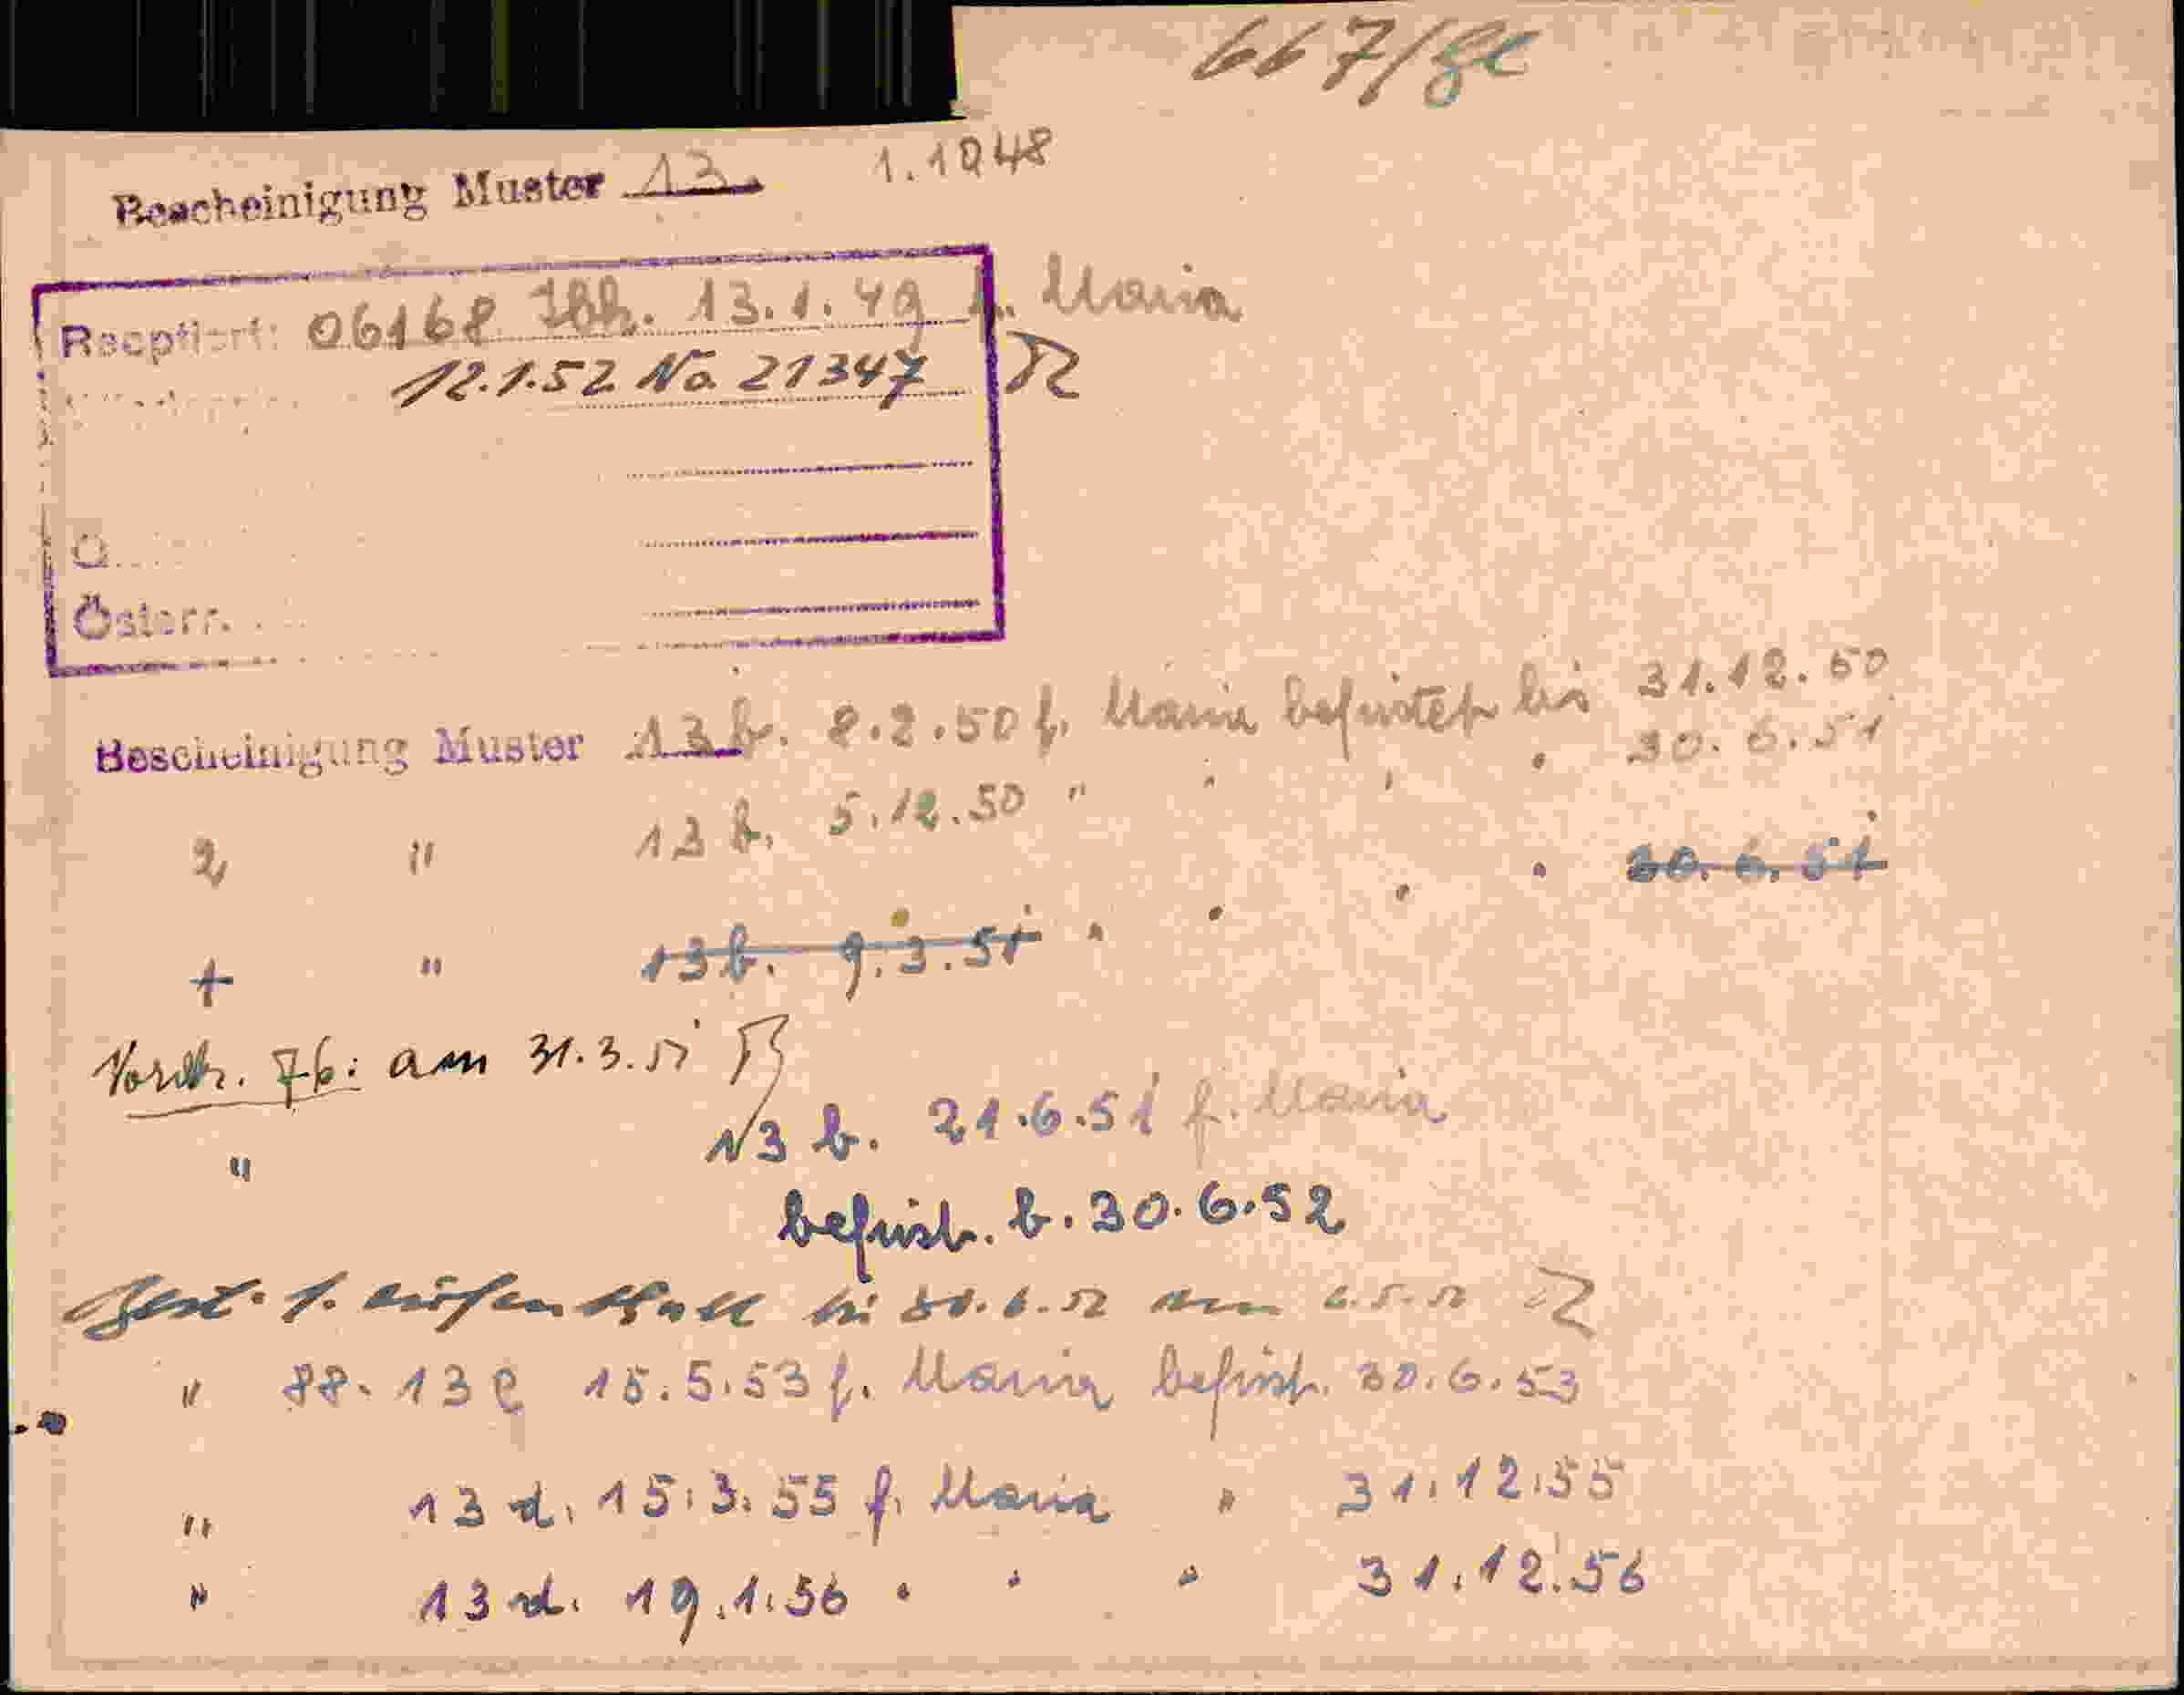 667/
Bescheinigung Muster 13. 1.1948
Reoptiert: 06168 Ibk. 13.1.49 f. Maria
12.1.52 No 21347
Ö
Österr.
Bescheinigung Muster 13 b. 8.2.50 f. Maria befristet bis 31.12.50
2 " 13 b. 5.12.50 " " " " 30.6.51
+ " 13 b. 9.3.51 " " " " 30.6.51
Vordr. 7b: am 31.3.51
" 13 b. 21.6.51 f. Maria
befrist. b. 30.6.52
bis 30.6.52
" 88. 13 e 15.5.53 f. Maria befrist. 30.6.53
" 13 d. 15.3.55 f. Maria " 31.12.55
" 13 d. 19.1.56 " " " 31.12.56